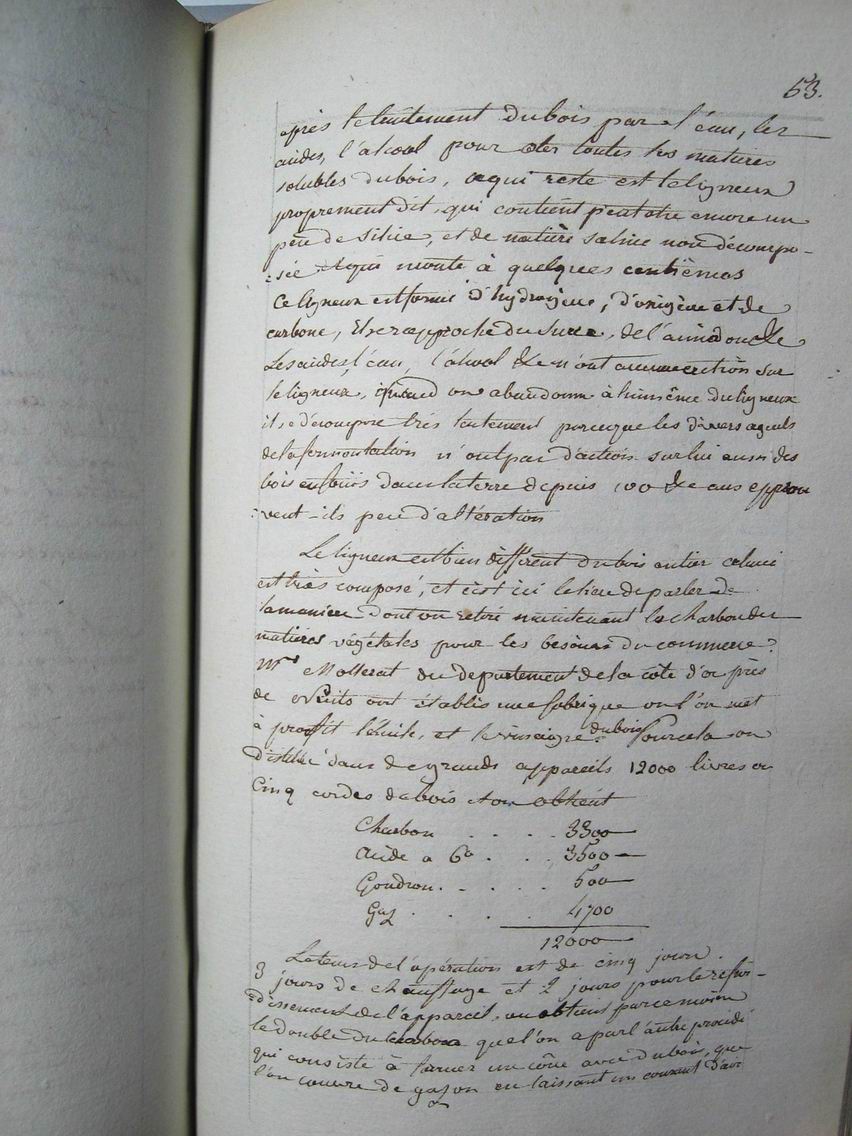 53.
après le traitement du bois par l'eau, les
acides, l'alcool pour oter toutes les matieres
solubles du bois, ce qui reste est le ligneux
proprement dit, qui contient peut etre encore un
peu de silice, et de matière saline non décompo-
:sée et qui monte à quelques centièmes
Ce ligneux est formé d'hydrogène, d'oxigène et de
carbone, il se rapproche du sucre, de l'amidon &c
Les acides, l'eau, l'alcool &c n'ont aucune action sur
le ligneux, quand on abandonne à lui même du ligneux
il se décompose très lentement parceque les divers agents
de la fermentation n'ont pas d'action sur lui aussi des
bois enfouis dans la terre depuis 100 &c ans eprou
:vent-ils peu d'altération
Le ligneux est bien différent du bois entier celui ci
est très composé, et c'est ici le lieu de parler de
la maniere dont on retire maintenant le charbon des
matières végétales pour les besoins du commerce.
Mrs Mollerat du departement de la côte d'or près
de Nuits ont établis une fabrique ou l'on met
à profit l'huile, et le vinaigre du bois. Pour cela on
distille dans de grands appareils 12000 livres ou
Cinq cordes de bois et on obtient
Charbon . . . . 3300
Acide a 6° . . . 3500
Goudron . . . . 500
Gaz . . . . 4700
12000
Le tems de l'opération est de cinq jours.
3 jours de chauffage et 2 jours pour le refroi-
:dissement de l'appareil, on obtient par ce moien
le double du charbon que l'on a par l'autre procédé
qui consiste à former un cône avec du bois, que
l'on couvre de gazon en laissant un courant d'air